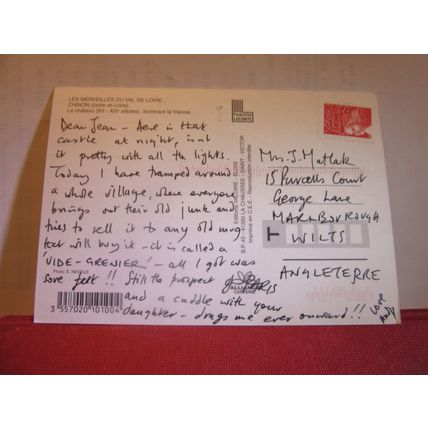 LES MERVEILLES DU VAL DE LOIRE...
CHINON (Indre-et-Loire)
Le château (XII - XIIIe siècles), dominant la Vienne.
Dear Jean - Here is that
castle at night, isn't
it pretty with all the lights.
Today I have tramped around
a whole village, where everyone
brings out their old junk and
tries to sell it to any old mug
that will buy it - it is called a
'VIDE-GRENIER' - all I got was
sore feet!! Still the prospect of
and a cuddle with your
daughter - drags me ever onward!!
Love
Andy
Photo S. NEVEUX
3 557020 101004
Editions VALOIRE - BLOIS
B.P. 45 - 41260 LA CHAUSSÉE - SAINT - VICTOR
Imprimé en C.E.E. - Reproduction interdite
LECONTE
Mrs. J. Matlak
15 Purcells Court
George Lane
MARLBOROUGH
WILTS
ANGLETERRE